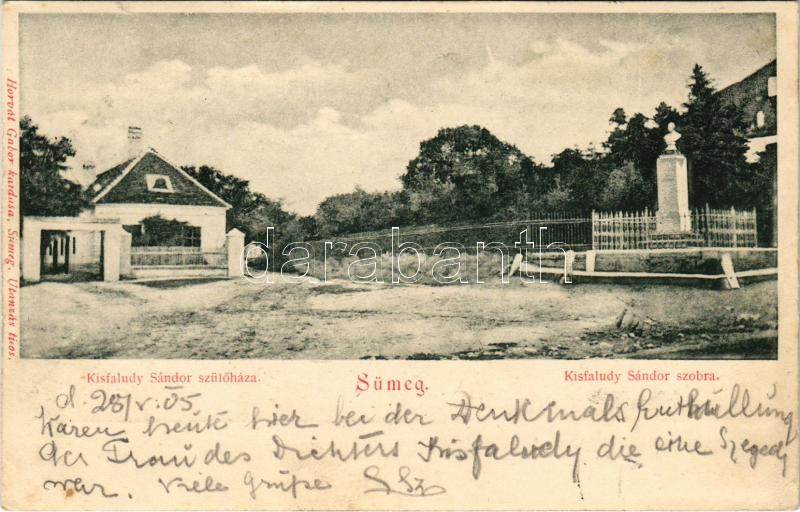 Horvát Gabor kiadása, Sümeg. Utanzás tilos.
darabanth
Kisfaludy Sándor szülőháza.
Sümeg.
Kisfaludy Sándor szobra.
d. 28/V. 05
Waren heute hier bei der Denkmals Enthüllung
der Frau des Dichters Kisfaludy die eine Szegedy
war. Viele Grüße